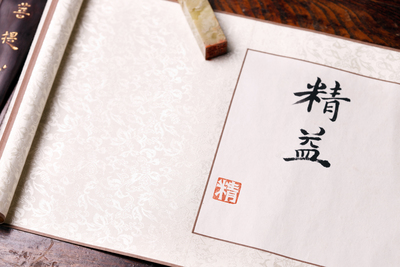 精
益
精
菩
提